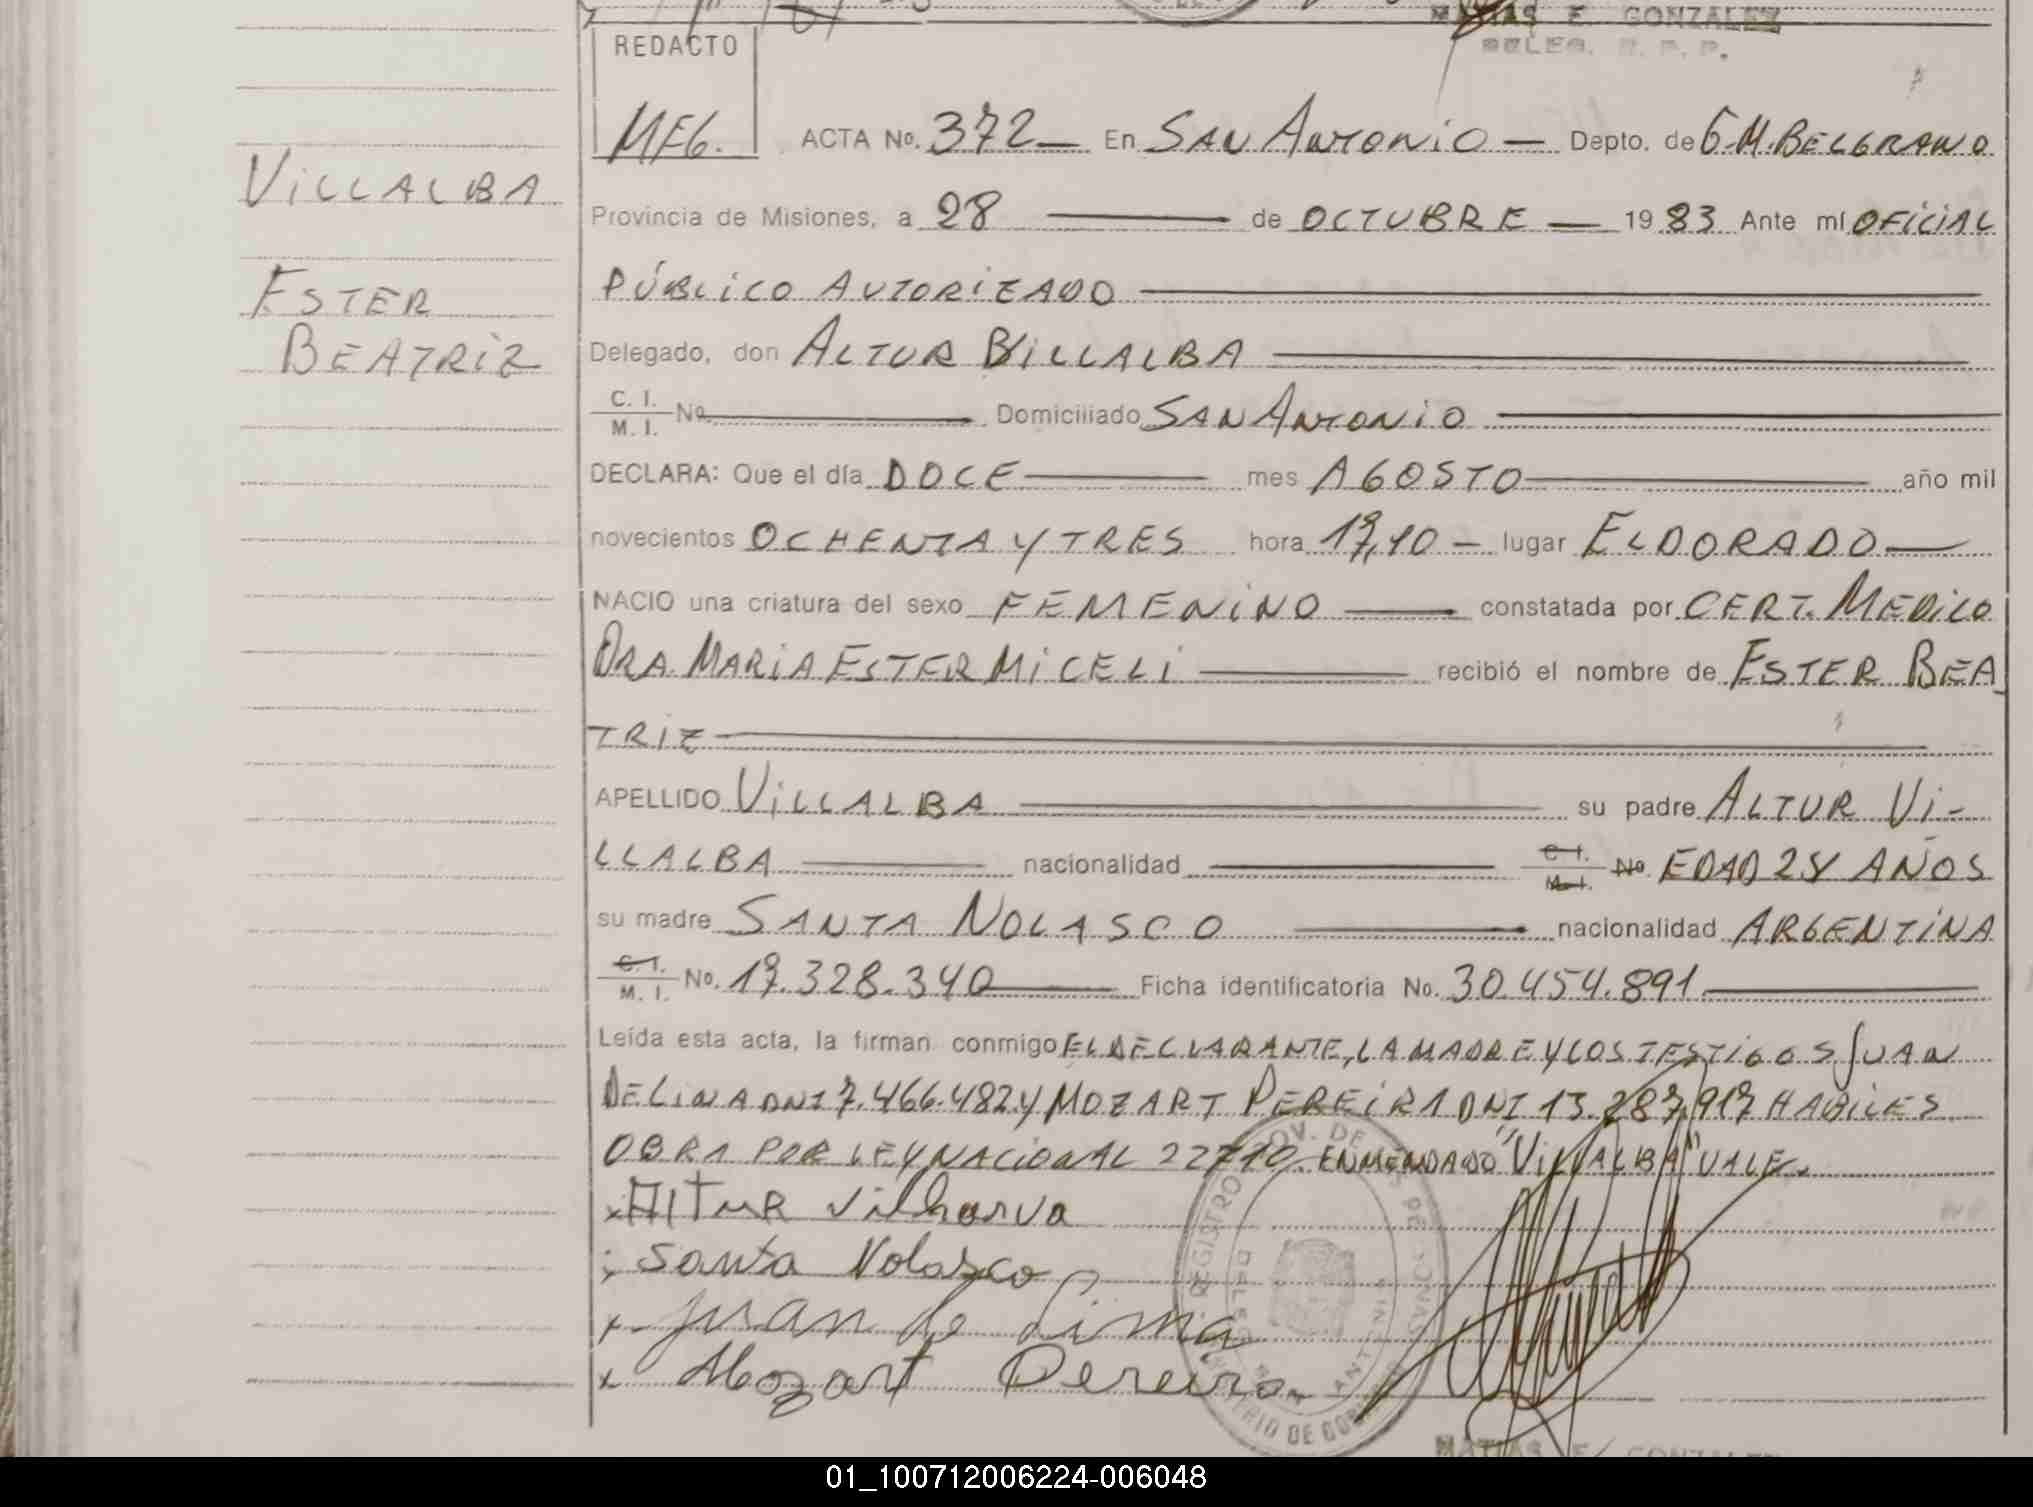 MATIAS E. GONZALEZ
DELEG. R. P. P.
REDACTO
MEG.
ACTA No. 372 — En SAN ANTONIO — Depto. de G.M. BELGRANO
VILLALBA
Provincia de Misiones, a 28 — de OCTUBRE — 1983 Ante mí OFICIAL
ESTER
PÚBLICO AUTORIZADO
BEATRIZ
Delegado, don ALTUR VILLALBA
C. I.
M. I. No. — Domiciliado SAN ANTONIO
DECLARA: Que el día DOCE — mes AGOSTO — año mil
novecientos OCHENTA Y TRES hora 17,10 — lugar ELDORADO —
NACIO una criatura del sexo FEMENINO — constatada por CERT. MEDICO
DRA. MARIA ESTER MICELI — recibió el nombre de ESTER BEA
TRIZ
APELLIDO VILLALBA — su padre ALTUR VI-
LLALBA — nacionalidad — C. I. M. I. No. EDAD 28 AÑOS
su madre SANTA NOLASCO — nacionalidad ARGENTINA
C. I.
M. I. No. 17.328.340 — Ficha identificatoria No. 30.454.891
Leída esta acta, la firman conmigo EL DECLARANTE, LA MADRE Y LOS TESTIGOS JUAN
DE LIMA DNI 7.466.482 Y MOZART PEREIRA DNI 13.287.917 HABILES
OBRA POR LEY NACIONAL 22710. ENMENDADO "VILLALBA" VALE.
x AlTUR Vilharva
x Santa Nolasco
x Juan de Lima
x Mozart Pereira
MATIAS E. GONZALEZ
01_100712006224-006048